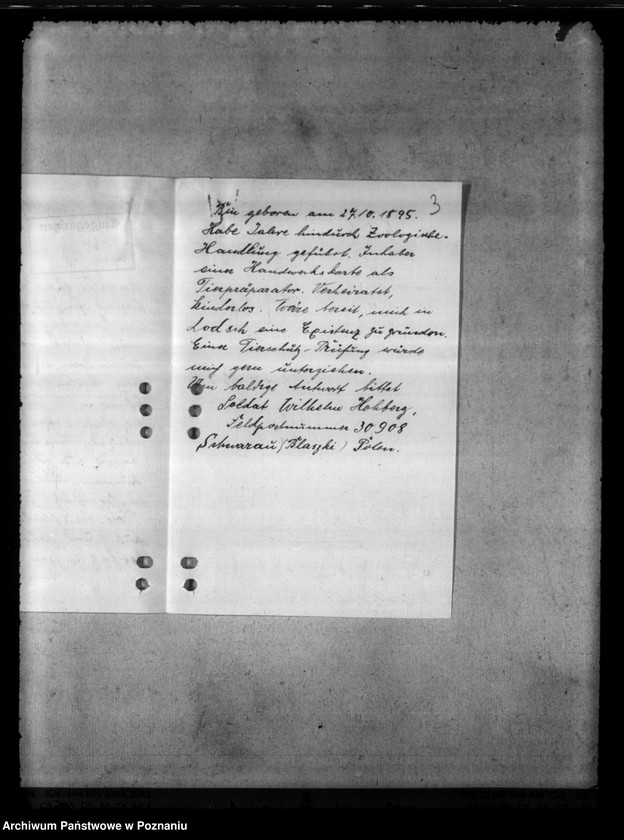 3
Bin geboren am 27.10.1895.
Habe Jahre hindurch Zoologische-
Handlung geführt. Inhaber
einer Handwerkskarte als
Tierpräparator. Verheiratet,
kinderlos. Wäre bereit, mich in
Lodsch eine Existenz zu gründen.
Einer Tierschutz-Prüfung würde
mich gern unterziehen.
Um baldige Antwort bittet
Soldat Wilhelm Hohberg,
Feldpostnummer 30908
Schwarau (Blaszki) Polen.
Eingegangen
Archiwum Państwowe w Poznaniu